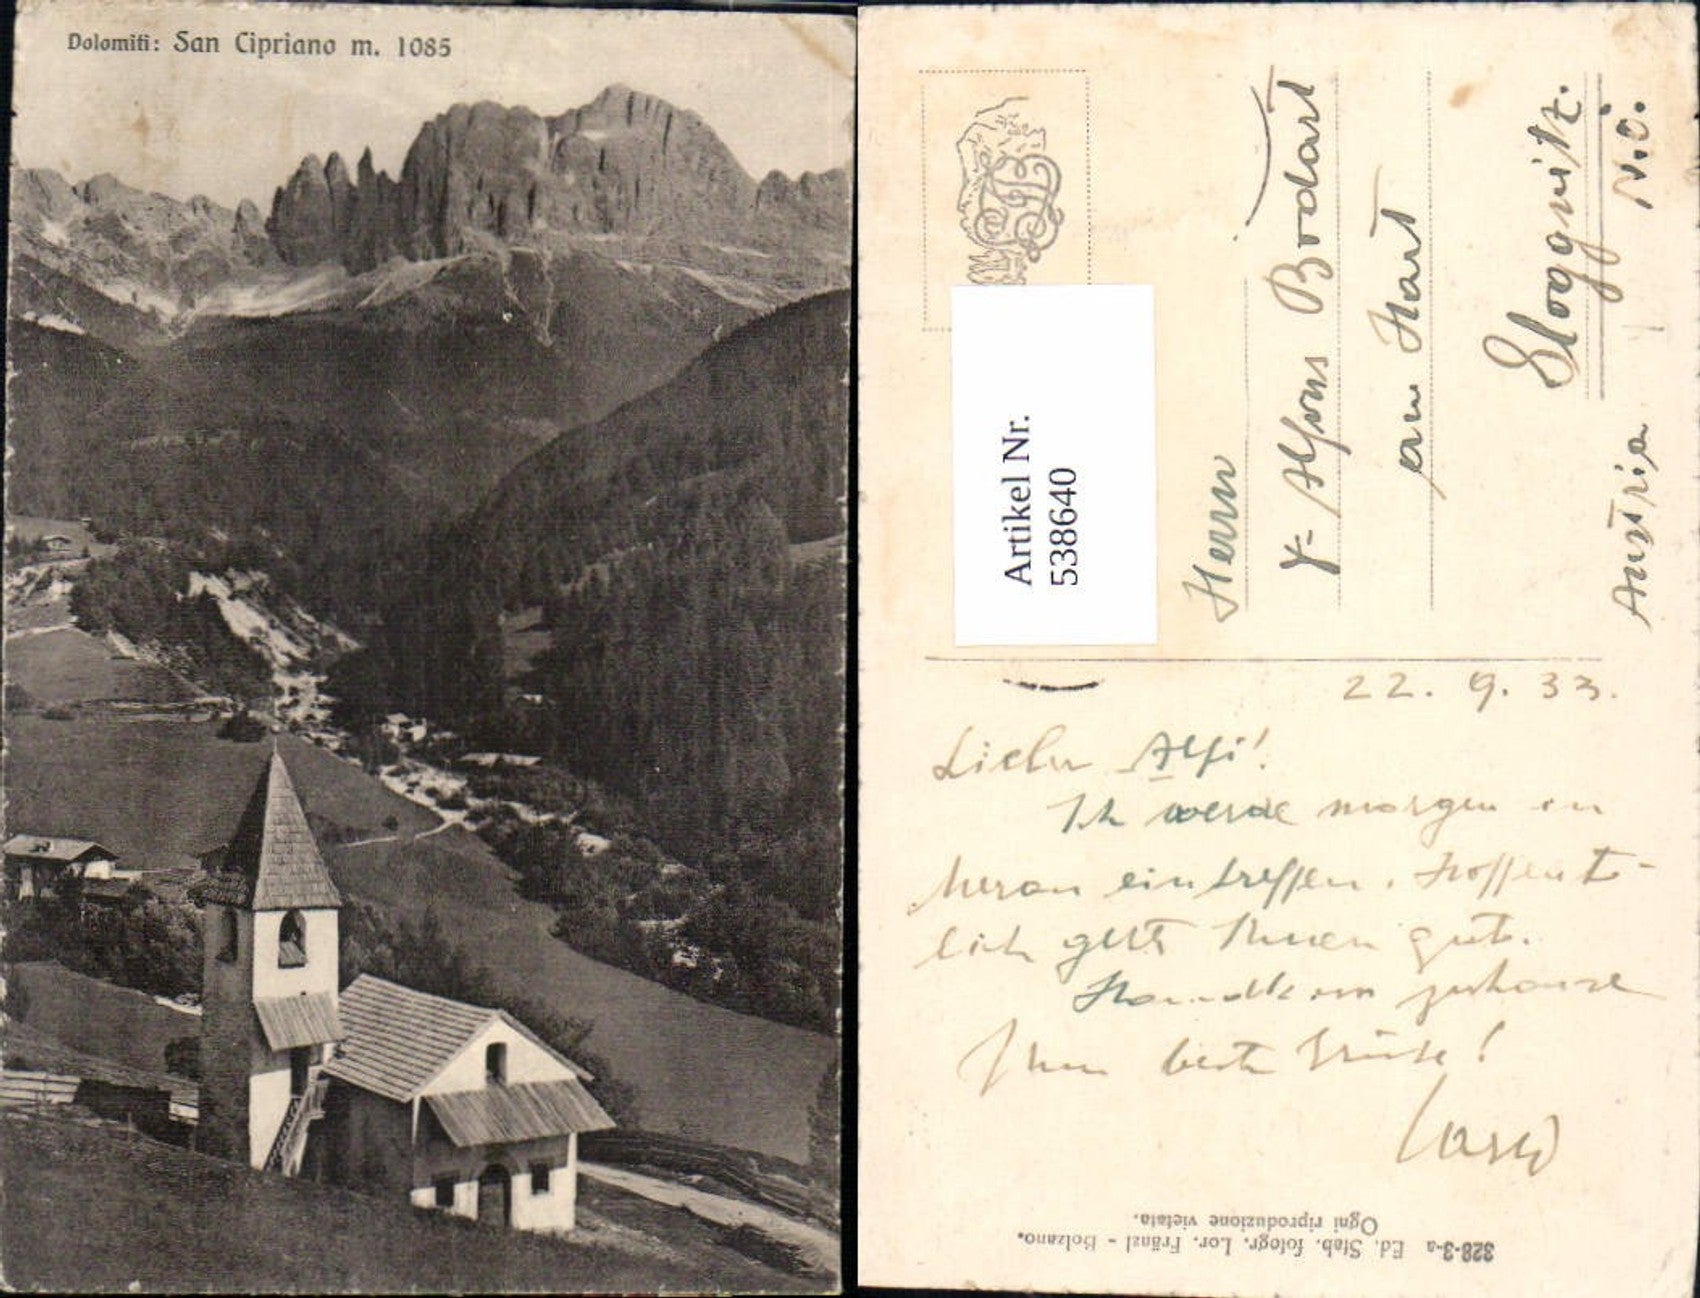 Dolomiti: San Cipriano m. 1085
Artikel Nr.
538640
Herrn
Alfons Brodart
am Hart
Gloggnitz.
N.Ö.
Austria
22. 9. 33.
Lieber Alfi!
Ich werde morgen in
Meran eintreffen. Hoffent-
lich geht Ihnen gut.
zuhause
Ihnen beste Grüsse!
328-3-a Ed. Stab. fotogr. Lor. Fränzl - Bolzano.
Ogni riproduzione vietata.